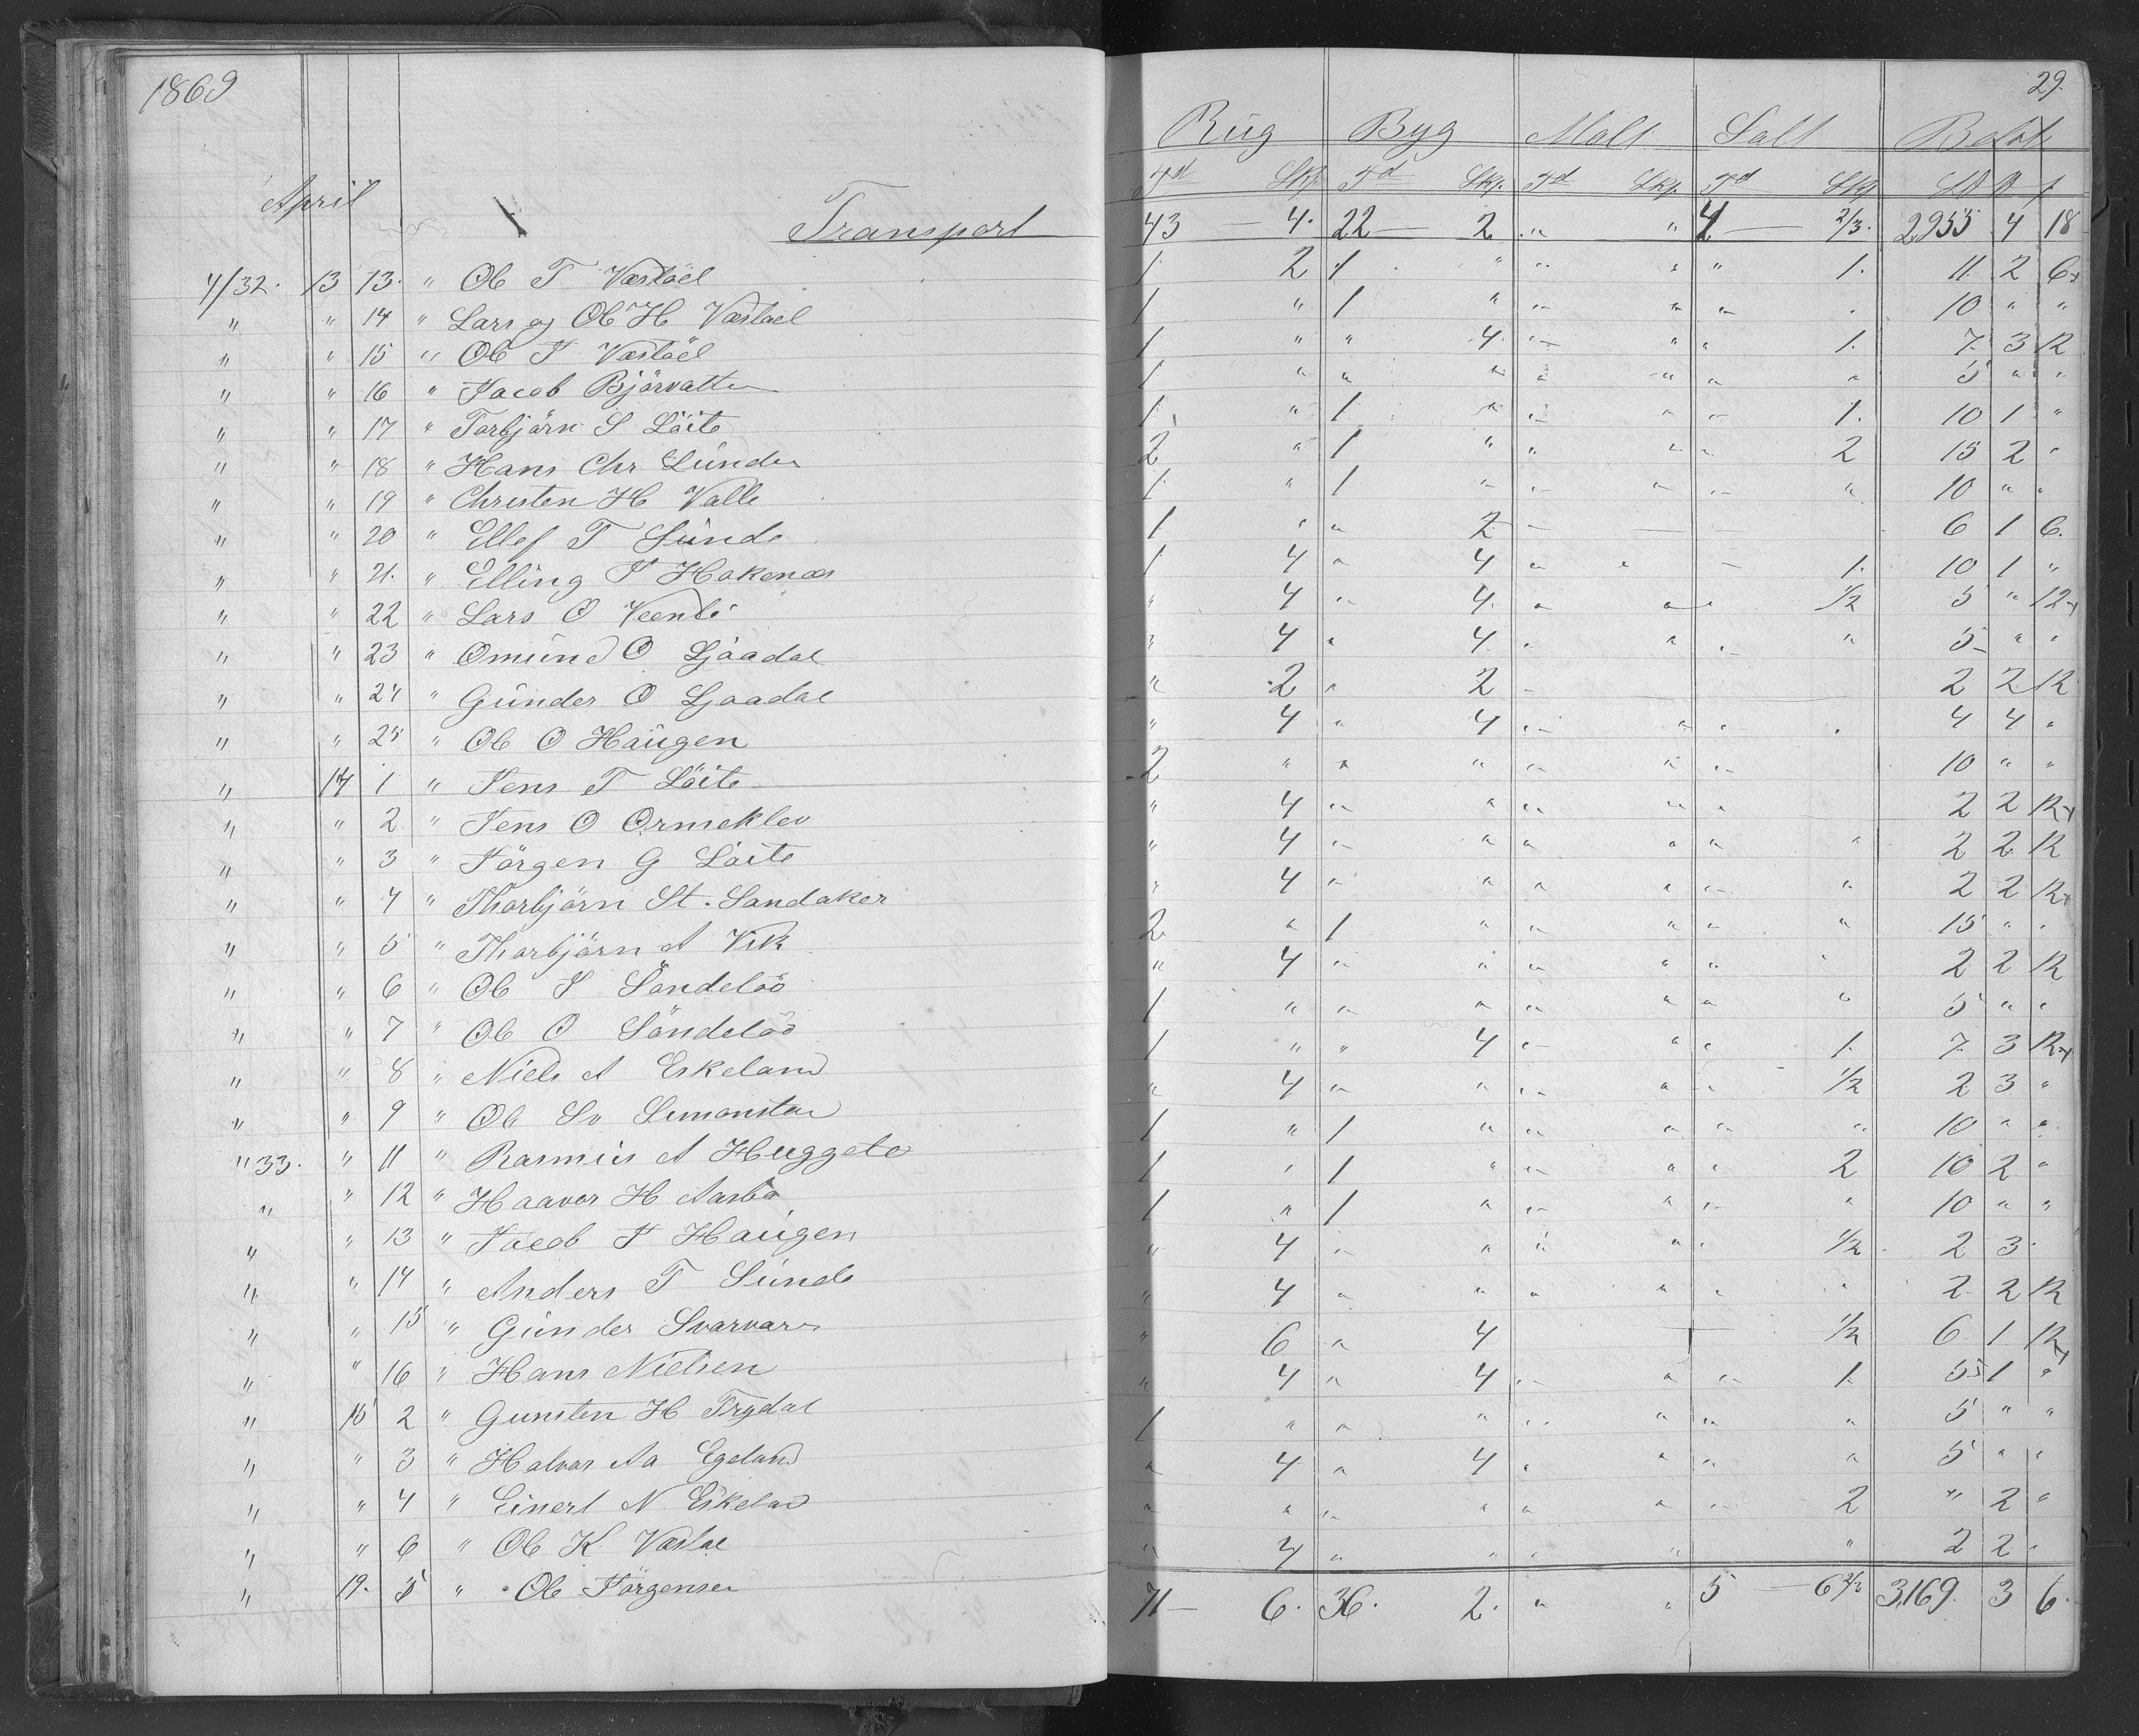 1869
29.
Rug Byg Malt Salt Beløb
April
Td Skp. Td Skp. Td Skp. Td Skp
Transport 43 — 4. 22 — 2 " " 4 — 2/3. 2955 4 18
4/32. 13 13. " Ole T Væstöel 1 2 1 " " " " 1. 11. 2 6
" " 14 " Lars og Ole H Væstöel 1 " 1 " " " " 10 " "
" " 15 " Ole J Væstöel 1 " " 4. " " " 1. 7. 3 12
" " 16 " Jacob Björvatten 1 " " " " " " " 5 " "
" " 17 " Torbjörn S Löite 1 " 1 " " " " 1. 10 1 "
" " 18 " Hans Chr Sunde 2 " 1 " " " " 2 15 2 "
" " 19 " Christen H Valle 1 " 1 " " " " " 10 " "
" " 20 " Ellef T Sunde 1 " " 2 — 6 1 6.
" " 21. " Elling J Hakenæs 1 4 " 4 " " " 1. 10 1 "
" " 22 " Lars O " 4 " 4. " " " 1/2 5 " 12
" " 23 " Omund O Ljaadal " 4 " 4. " " " " 5 " "
" " 24 " Gunder O Ljaadal " 2 " 2 — 2 2 12
" " 25 " Ole O Haugen " 4 " 4 " " " . 4 4 "
" 14 1 " Jens T Löite 2 " " " " " " 10 " "
" " 2 " Jens O Ormeklev " 4 " " " " " 2 2 12
" " 3 " Jörgen G Löite " 4 " " " " " " 2 2 12
" " 4 " Thorbjörn St. Sandaker " 4 " " " " " " 2 2 12
" " 5 " Thorbjörn A Vik 2 " 1 " " " " " 15 " "
" " 6 " Ole J Söndelöö " 4 " " " " " " 2 2 12
" " 7 " Ole O Söndelöö 1 " " " " " " " 5 " "
" " 8 " Niels A Eskeland 1 " " 4 " " " 1. 7. 3 12
" " 9 " Ole Sv Simonstad " 4 " " " " " 1/2 2 3 "
" 33. " 11 " Rasmus A Huggete 1 " 1 " " " " " 10 " "
" " 12 " Haaver H Aasbø 1 " 1 " " " " 2 10 2 "
" " 13 " Jacob J Haugen 1 " 1 " " " " " 10 " "
" " 14 " Anders T Sunde " 4 " " " " " 1/2 2 3 "
" " 15 " Gunder Svarvar " 4 " " " " " " 2 2 12
" " 16 " Hans Nielsen " 6 " 4 — 1/2 6 1 12
" 15 2 " Gunsten H Trydal " 4 " 4 " " " 1 5 1 "
" " 3 " Halvor Aa Egeland 1 " " " " " " " 5 " "
" " 4 " Einert N Eskeland " 4 " 4 " " " " 5 " "
" " 6 " Ole K Væstöl " " " " " " " 2 " 2 "
" 19. 5 " Ole Jörgensen " 4 " " " " " 2 2 "
71 — 6. 36. 2. " " 5 — 6 2/3 3,169. 3 6.